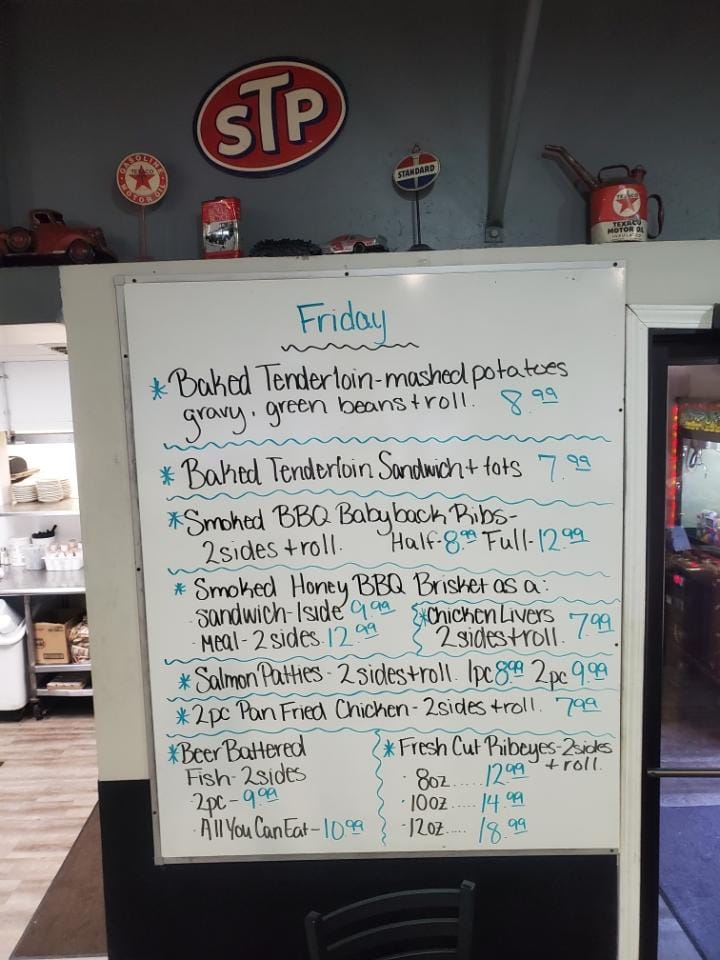 STP
GASOLINE
TEXACO
MOTOR OIL
STANDARD
TEXACO
TEXACO
MOTOR OIL
Friday
* Baked Tenderloin-mashed potatoes
gravy, green beans + roll. 8.99
* Baked Tenderloin Sandwich + tots 7.99
* Smoked BBQ Babyback Ribs-
2 sides + roll. Half-8.99 Full-12.99
* Smoked Honey BBQ Brisket as a:
· sandwich-1side 9.99
· Meal-2 sides. 12.99
* Chicken Livers 7.99
2 sides + roll.
* Salmon Patties - 2 sides + roll. 1pc 8.99 2pc 9.99
* 2pc Pan Fried Chicken - 2 sides + roll. 7.99
* Beer Battered
Fish - 2 sides
· 2pc - 9.99
· All You Can Eat - 10.99
* Fresh Cut Ribeyes - 2 sides
+ roll.
· 8oz..... 12.99
· 10oz..... 14.99
· 12oz.... 18.99